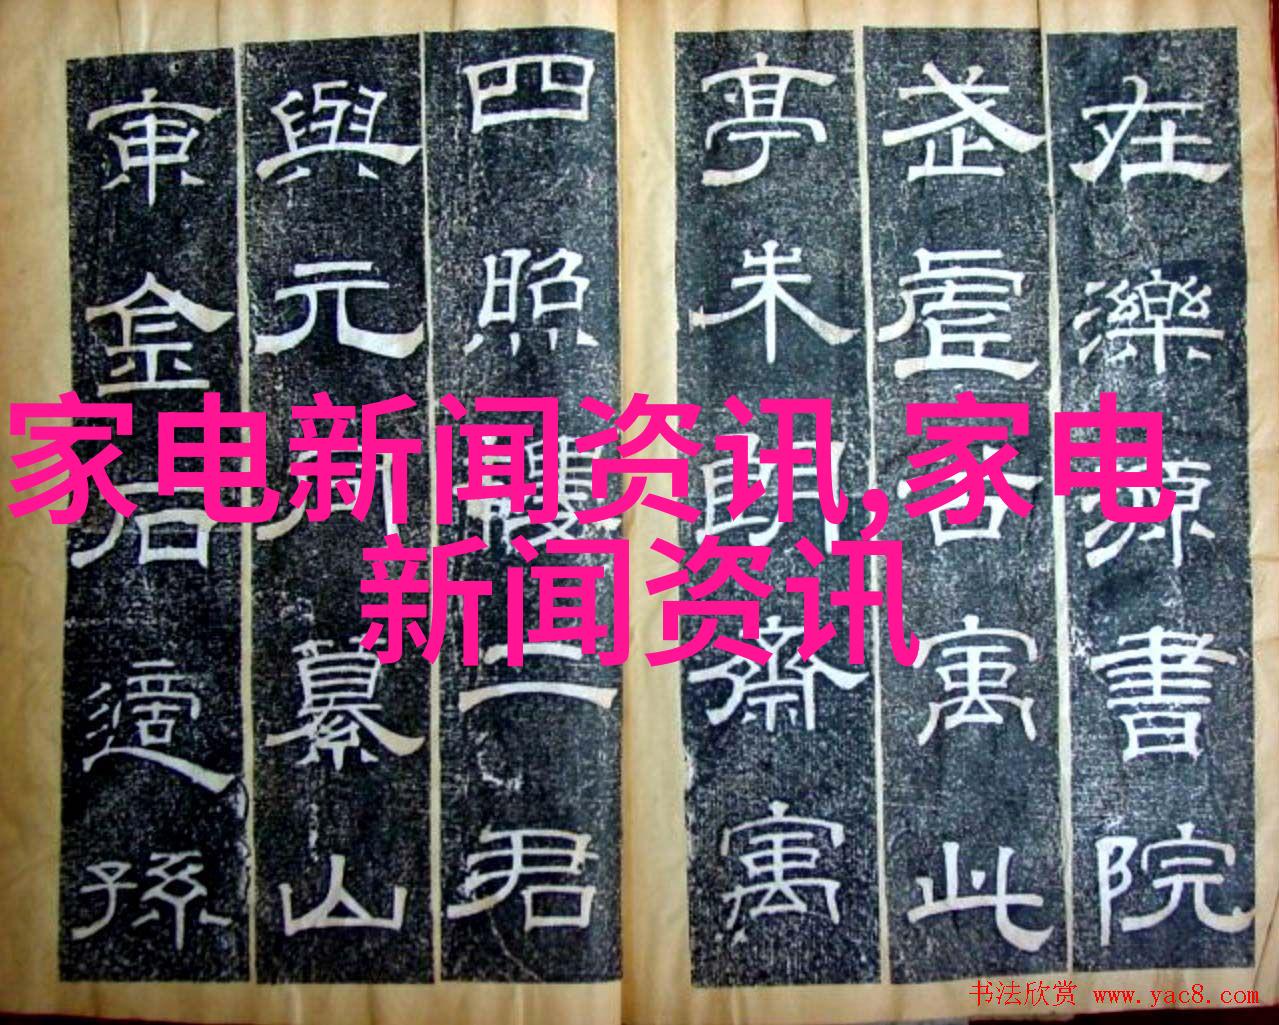 在濼源書院
武虛谷寓此
亭朱朗齋寓
四照樓二君
與元同纂山
東金石適孫
家电新闻资讯,家电
新闻资讯
书法欣赏 www.yac8.com